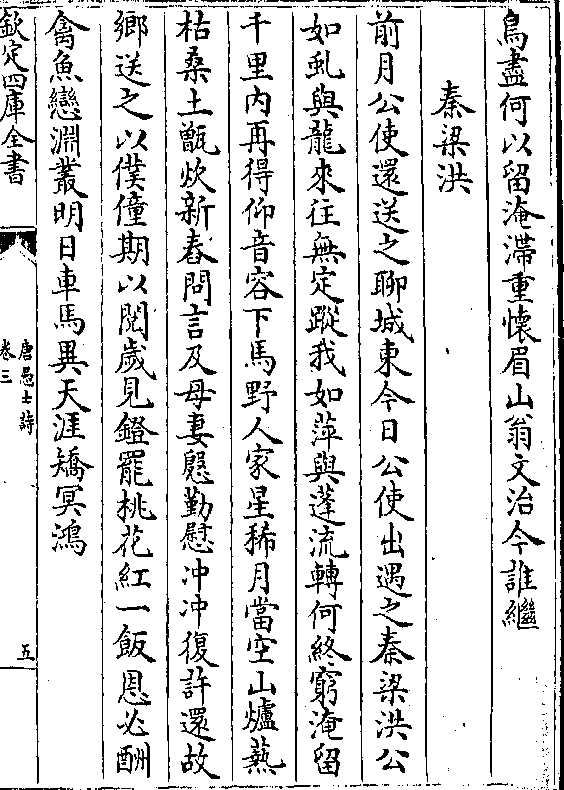 鳥盡何以留淹滯重懷眉山翁文治今誰繼
秦梁洪
前月公使還送之聊城東今日公使出遇之秦梁洪公
如虬與龍來往無定蹤我如萍與蓬流轉何終窮淹留
千里内再得仰音容下馬野人家星稀月當空山爐爇
枯桑土甑炊新舂問言及母妻慇勤慰冲冲復許還故
鄉送之以僕僮期以閱歲見鐙罷桃花紅一飯恩必酬
禽魚戀淵叢明日車馬異天涯矯冥鴻
欽定四庫全書
唐愚士詩
卷三
五